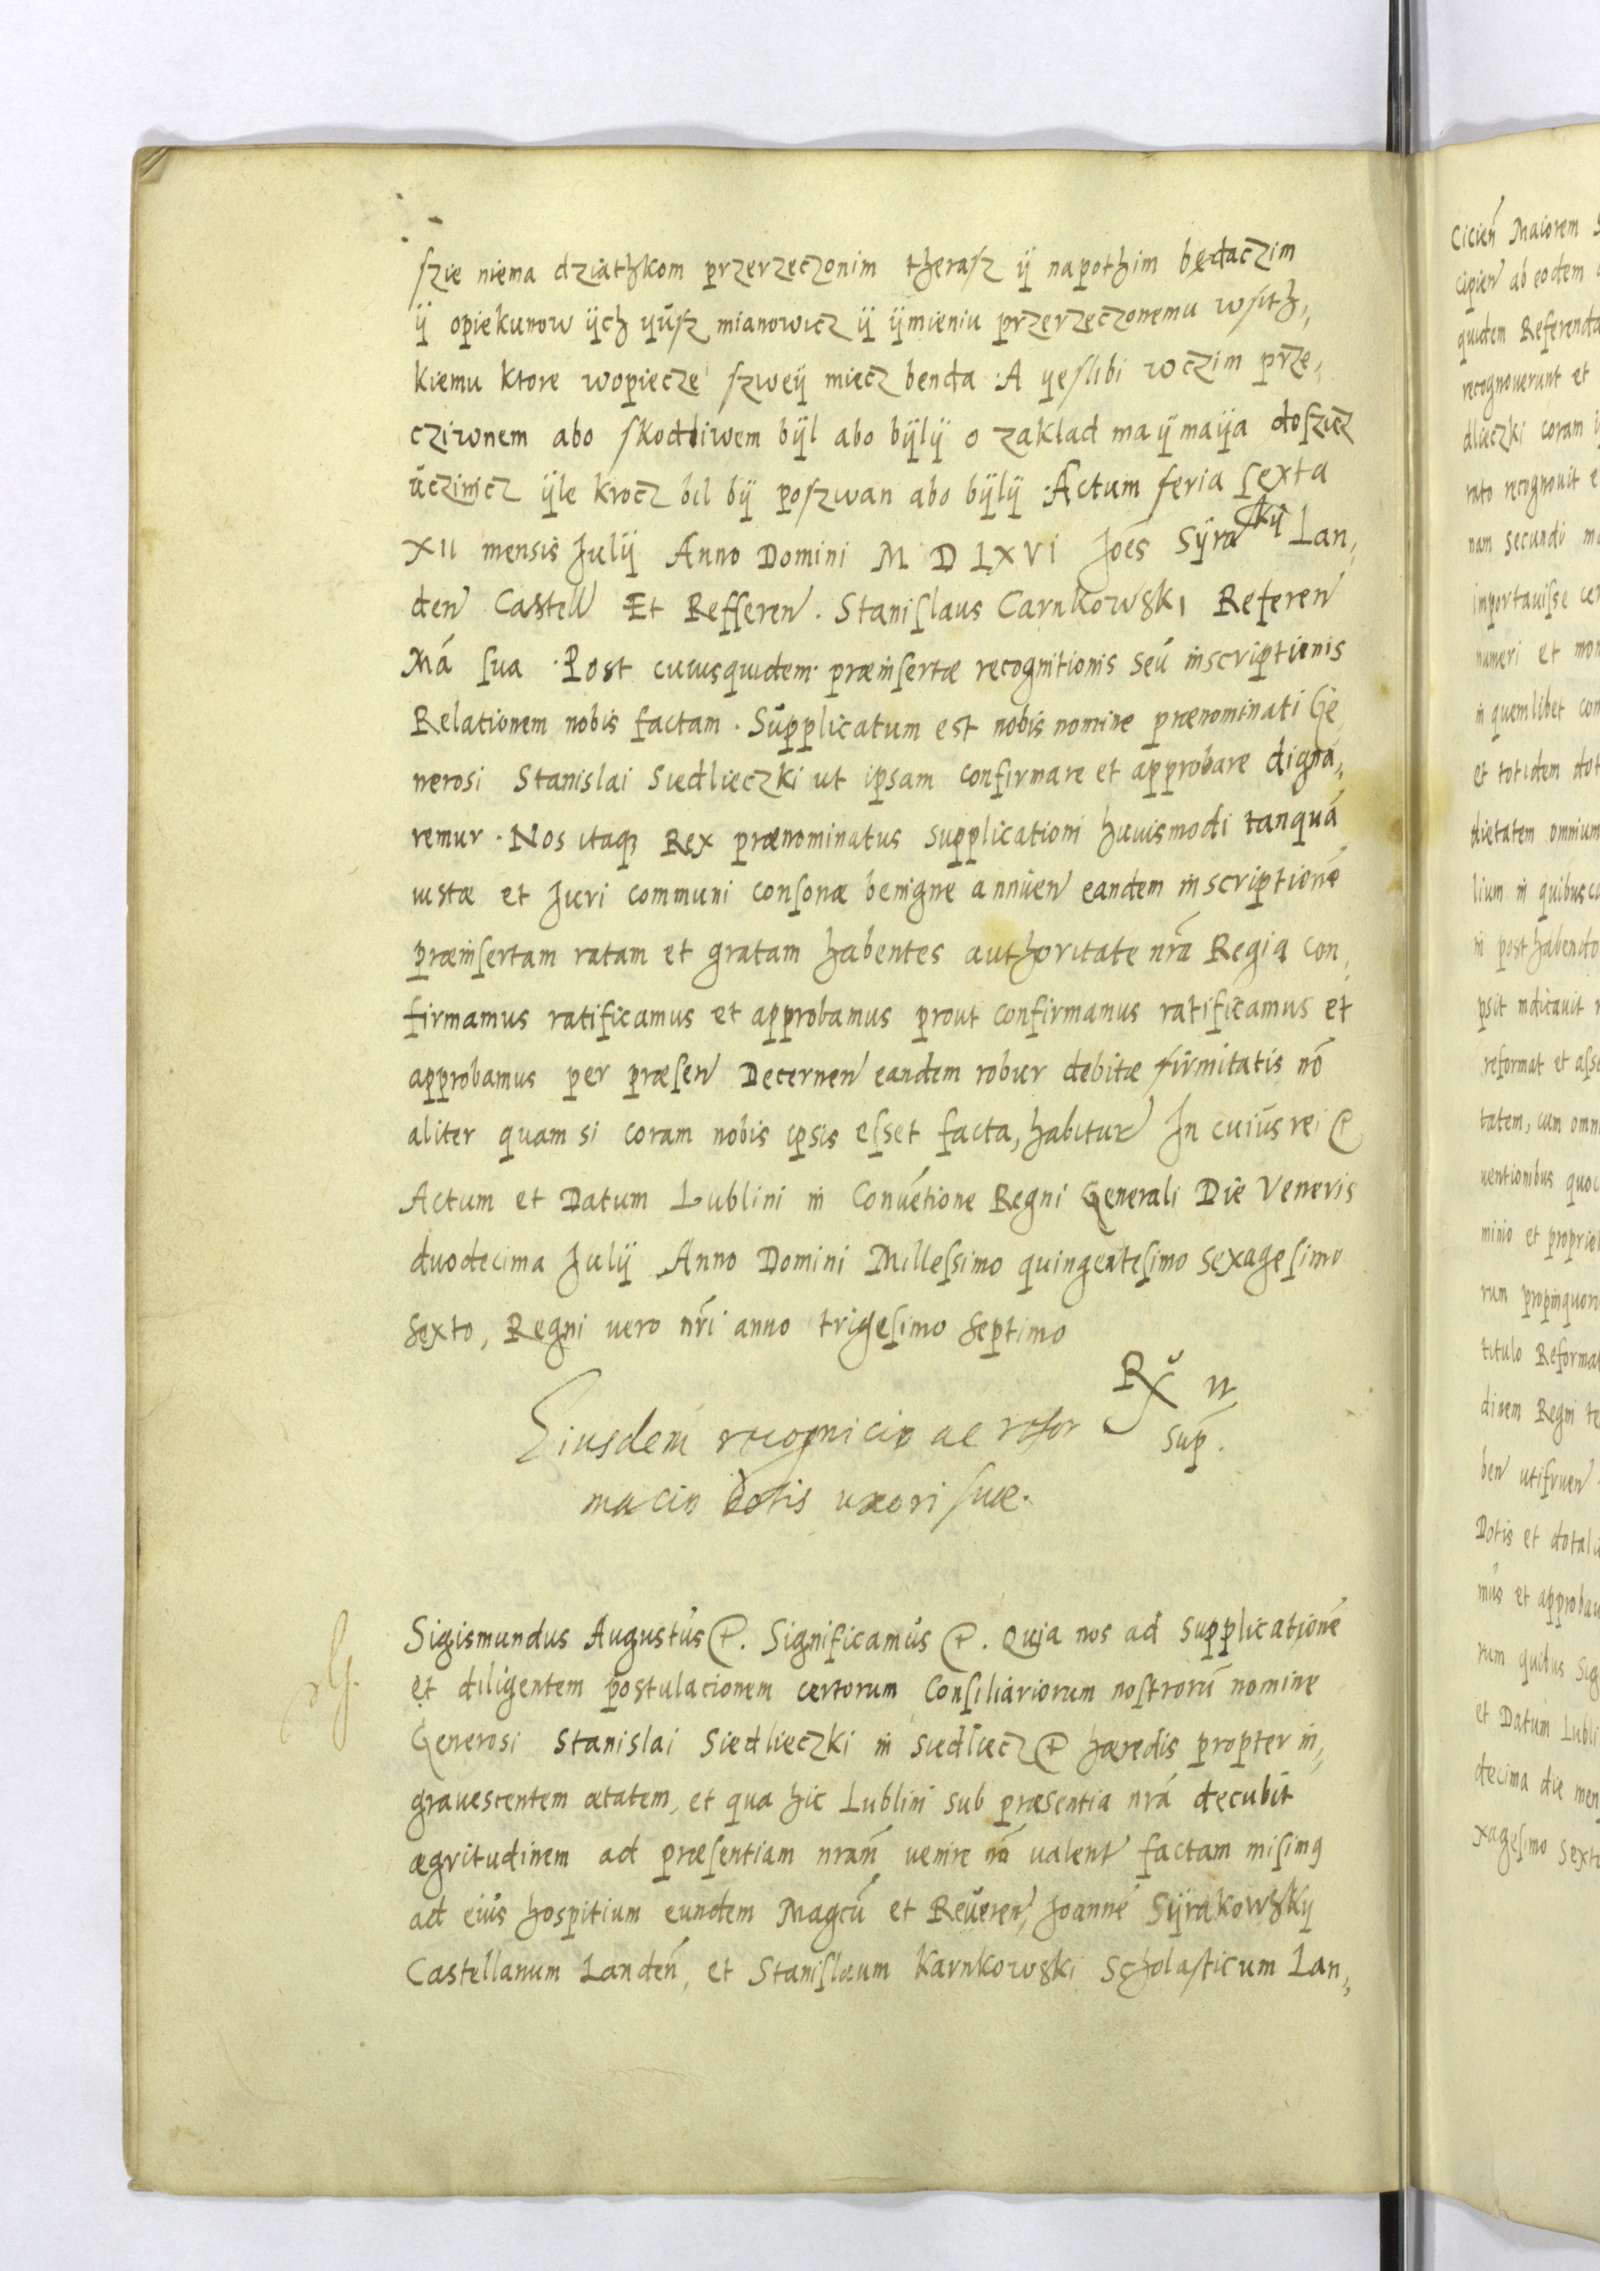 ſzie niema dziathkom przerzeczonim theraſz ÿ napothim będaczim
ÿ opiekunow ÿch yuſz mianowicz ÿ ÿmieniu przerzeczonemu wſith,,
kiemu ktore wopiecze ſzweÿ miecz benda. A yeſlibi wczim prze,
cziwnem abo ſkodliwem bÿl abo bÿlÿ o zaklad maÿ maÿa doſzicz
uczinicz ÿle krocz bil bÿ poſzwan abo bÿlÿ. Actum feria ſexta
XII mensis Julÿ Anno Domini M D LXVI Joēs Sÿraſkÿ Lan,
deń Castell Et Refferen. Staniſlaus Carnkowski Referen
Mā ſua. Post cuiusquidem præinſertæ recognitionis seu inscriptionis
Relationem nobis factam. Supplicatum est nobis nomine prænominati Ge
nerosi Stanislai Siedlieczki ut ipsam confirmare et approbare digna,,
remur. Nos itaqȝ Rex prænominatus supplicationi huiusmodi tanquā
iustæ et Juri communi conſonæ benigne annuen eandem inscriptionē
præinſertam ratam et gratam habentes authoritate nrā Regia con,
firmamus ratificamus et approbamus prout confirmamus ratificamus et
approbamus per præſen Decernen eandem robur debitæ firmitatis nō
aliter quam si coram nobis ipsis eſset facta, habitur In cuius rei &
Actum et Datum Lublini in Convētione Regni Generali Die Veneris
duodecima Julÿ Anno Domini Milleſsimo quingenteſimo sexageſimo
sexto, Regni vero nr̄i anno trigeſimo septimo
Eiusdem recognicio ac refor
Rx
sup.
macio dotis uxori ſuæ.
Sigismundus Augustus &. Significamus &. Quia nos ad supplicationē
et diligentem postulacionem certorum Conſiliariorum noſtrorū nomine
Generosi Stanislai Siedlieczki in Siedliecz & hæredis propter in,,
grauescentem ætatem, et qua hic Lublini sub præsentia nrā decubit
ægritudinem ad præſentiam nram̄ venire nō valent factam miſimꝰ
ad eius hospitium eundem Magcū et Reueren, Joannē Sÿrakowſky
Castellanum Landeń, et Staniſlaum Karnkowski Scholaſticum Lan,,
Cicień Maiorem
cipien ab eodem
quidem Referenda
recognouerunt et
dlieczki coram
rato recognouit e
nam secundi
importauiſse cer
numeri et mon
in quemlibet con
et totidem dot
dietatem omnium
lium in quibuscu
in posthabendo
psit indicauit
reformat et aſse
tatem, cum omn
uentionibus quoc
minio et propriet
rum propinquor
titulo Reformat
dinem Regni te
ben utifruen
Dotis et dotali
mus et approbau
rum quibus Sig
et Datum Lubli
decima die men
xageſimo sexto